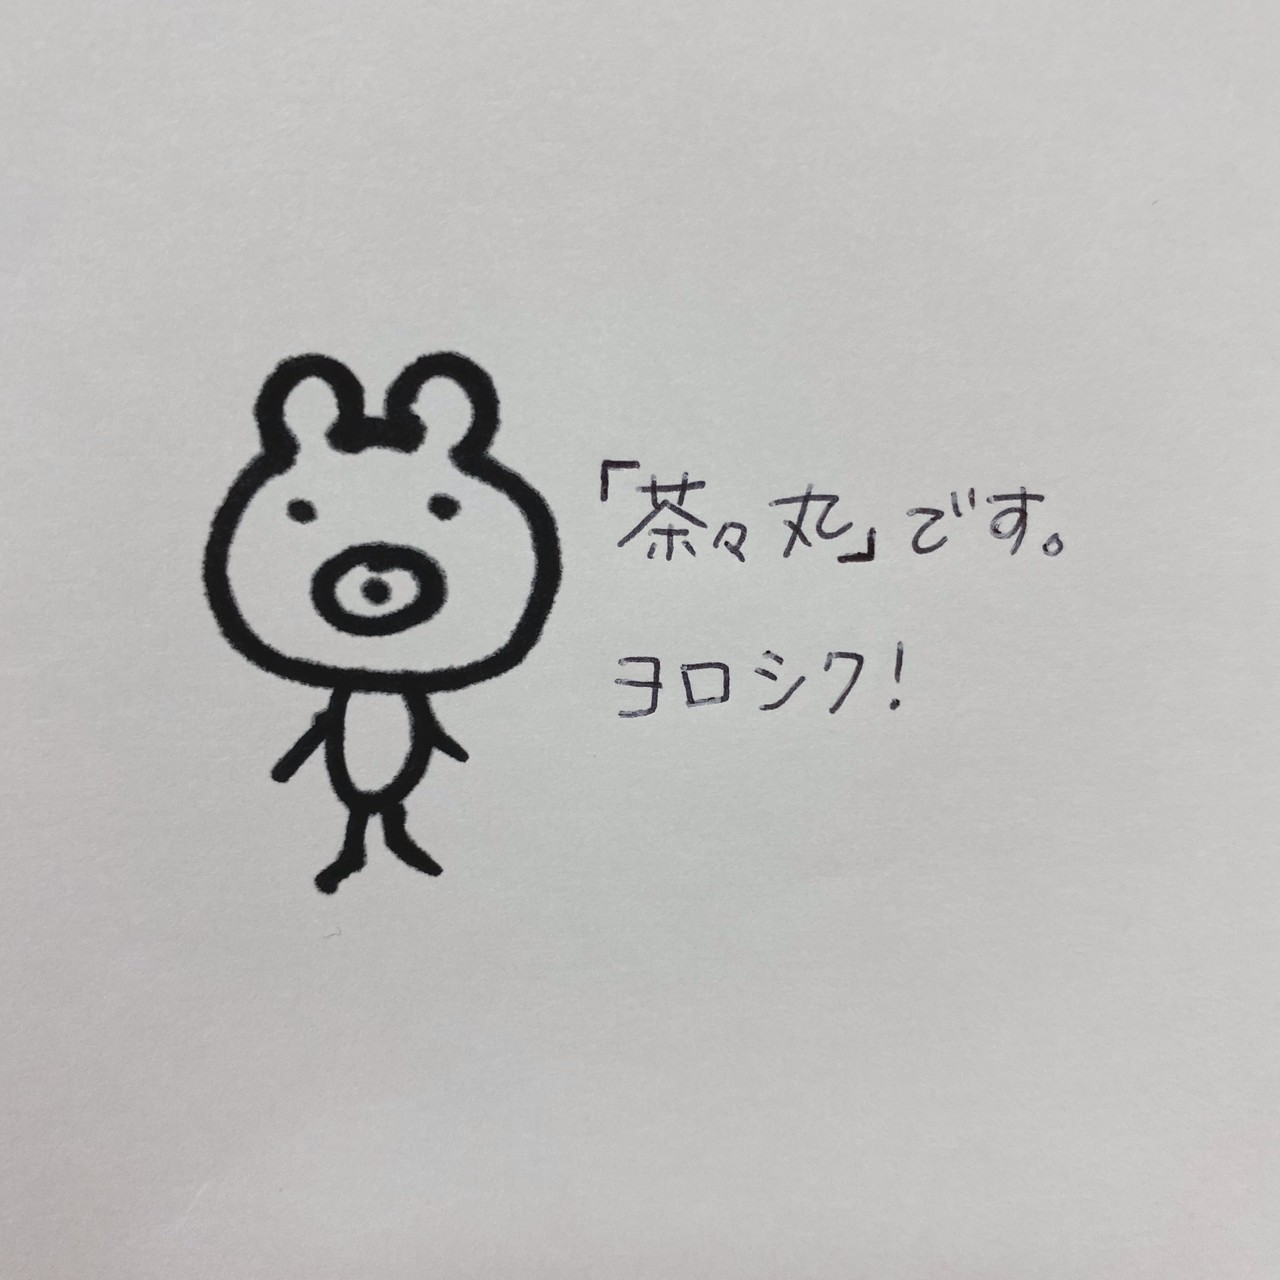 「茶々丸」です。
ヨロシク!